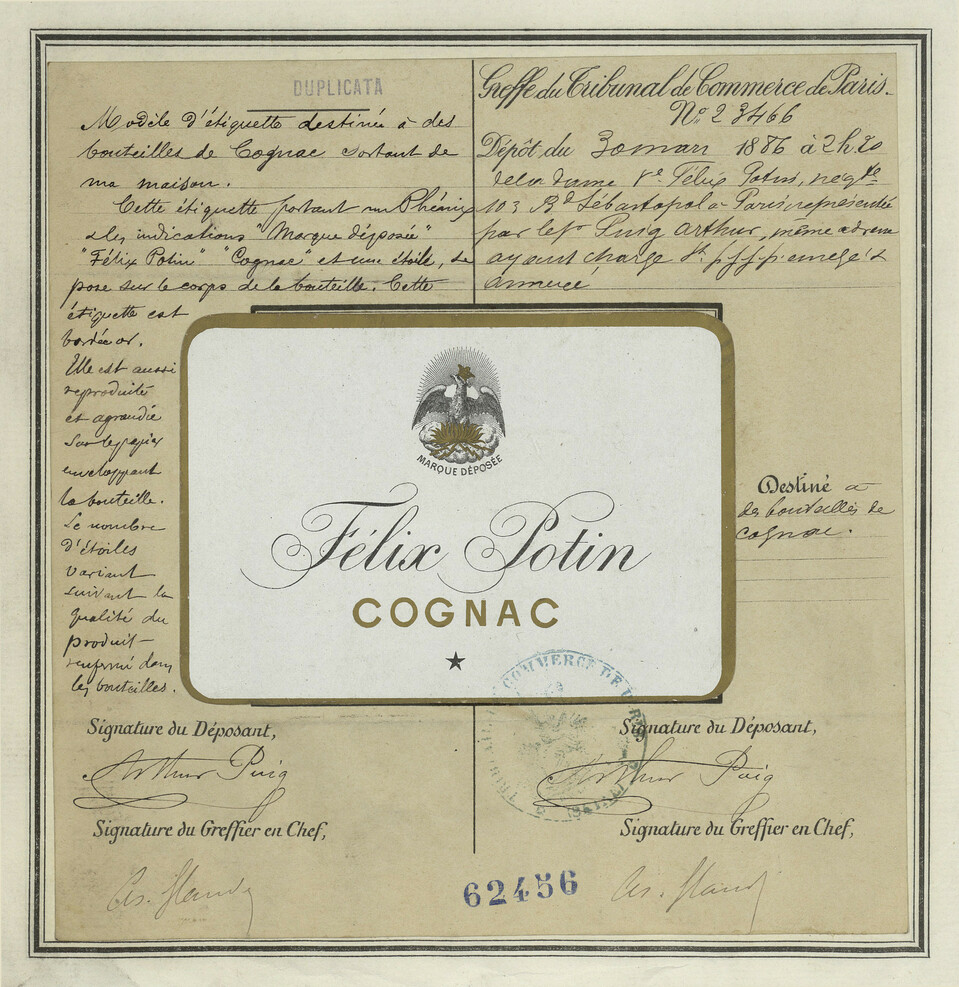 DUPLICATA
Modèle d'étiquette destinée à des
bouteilles de Cognac sortant de
ma maison.
Cette étiquette portant un Phénix
& les indications "Marque déposée"
"Félix Potin" "Cognac" et une étoile, se
pose sur le corps de la bouteille. Cette
étiquette est
bordée or.
Elle est aussi
reproduite
et agrandie
sur le papier
enveloppant
la bouteille.
Le nombre
d'étoiles
variant
suivant la
qualité du
produit
renfermé dans
les bouteilles.
Greffe du Tribunal de Commerce de Paris.
No. 23466
Dépôt du 30 mars 1886 à 2h 20
de la dame Ve. Félix Potin, négte
103 Bd Sébastopol à Paris représentée
par le Sr Puig Arthur, même adresse
ayant charge
MARQUE DÉPOSÉE
Félix Potin
COGNAC
Destiné à
des bouteilles de
cognac.
TRIBUNAL DE COMMERCE DE
Signature du Déposant,
Arthur Puig
Signature du Greffier en Chef,
Signature du Déposant,
Arthur Puig
Signature du Greffier en Chef,
62456